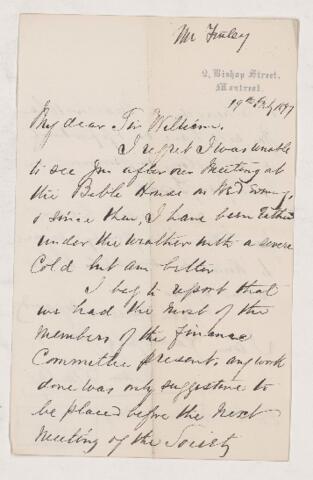 Mr Finley
2, Bishop Street,
Montreal.
19th Feby 1897
My dear Sir William.
I regret I was unable
to see you after our Meeting at
the Bible House on Wed Evening,
& since then, I have been rather
under the weather with a severe
Cold but am better
I beg to report that
we had the most of the
members of the finance
Committee present. any work
done was only suggestive to
be placed before the next
Meeting of the Society